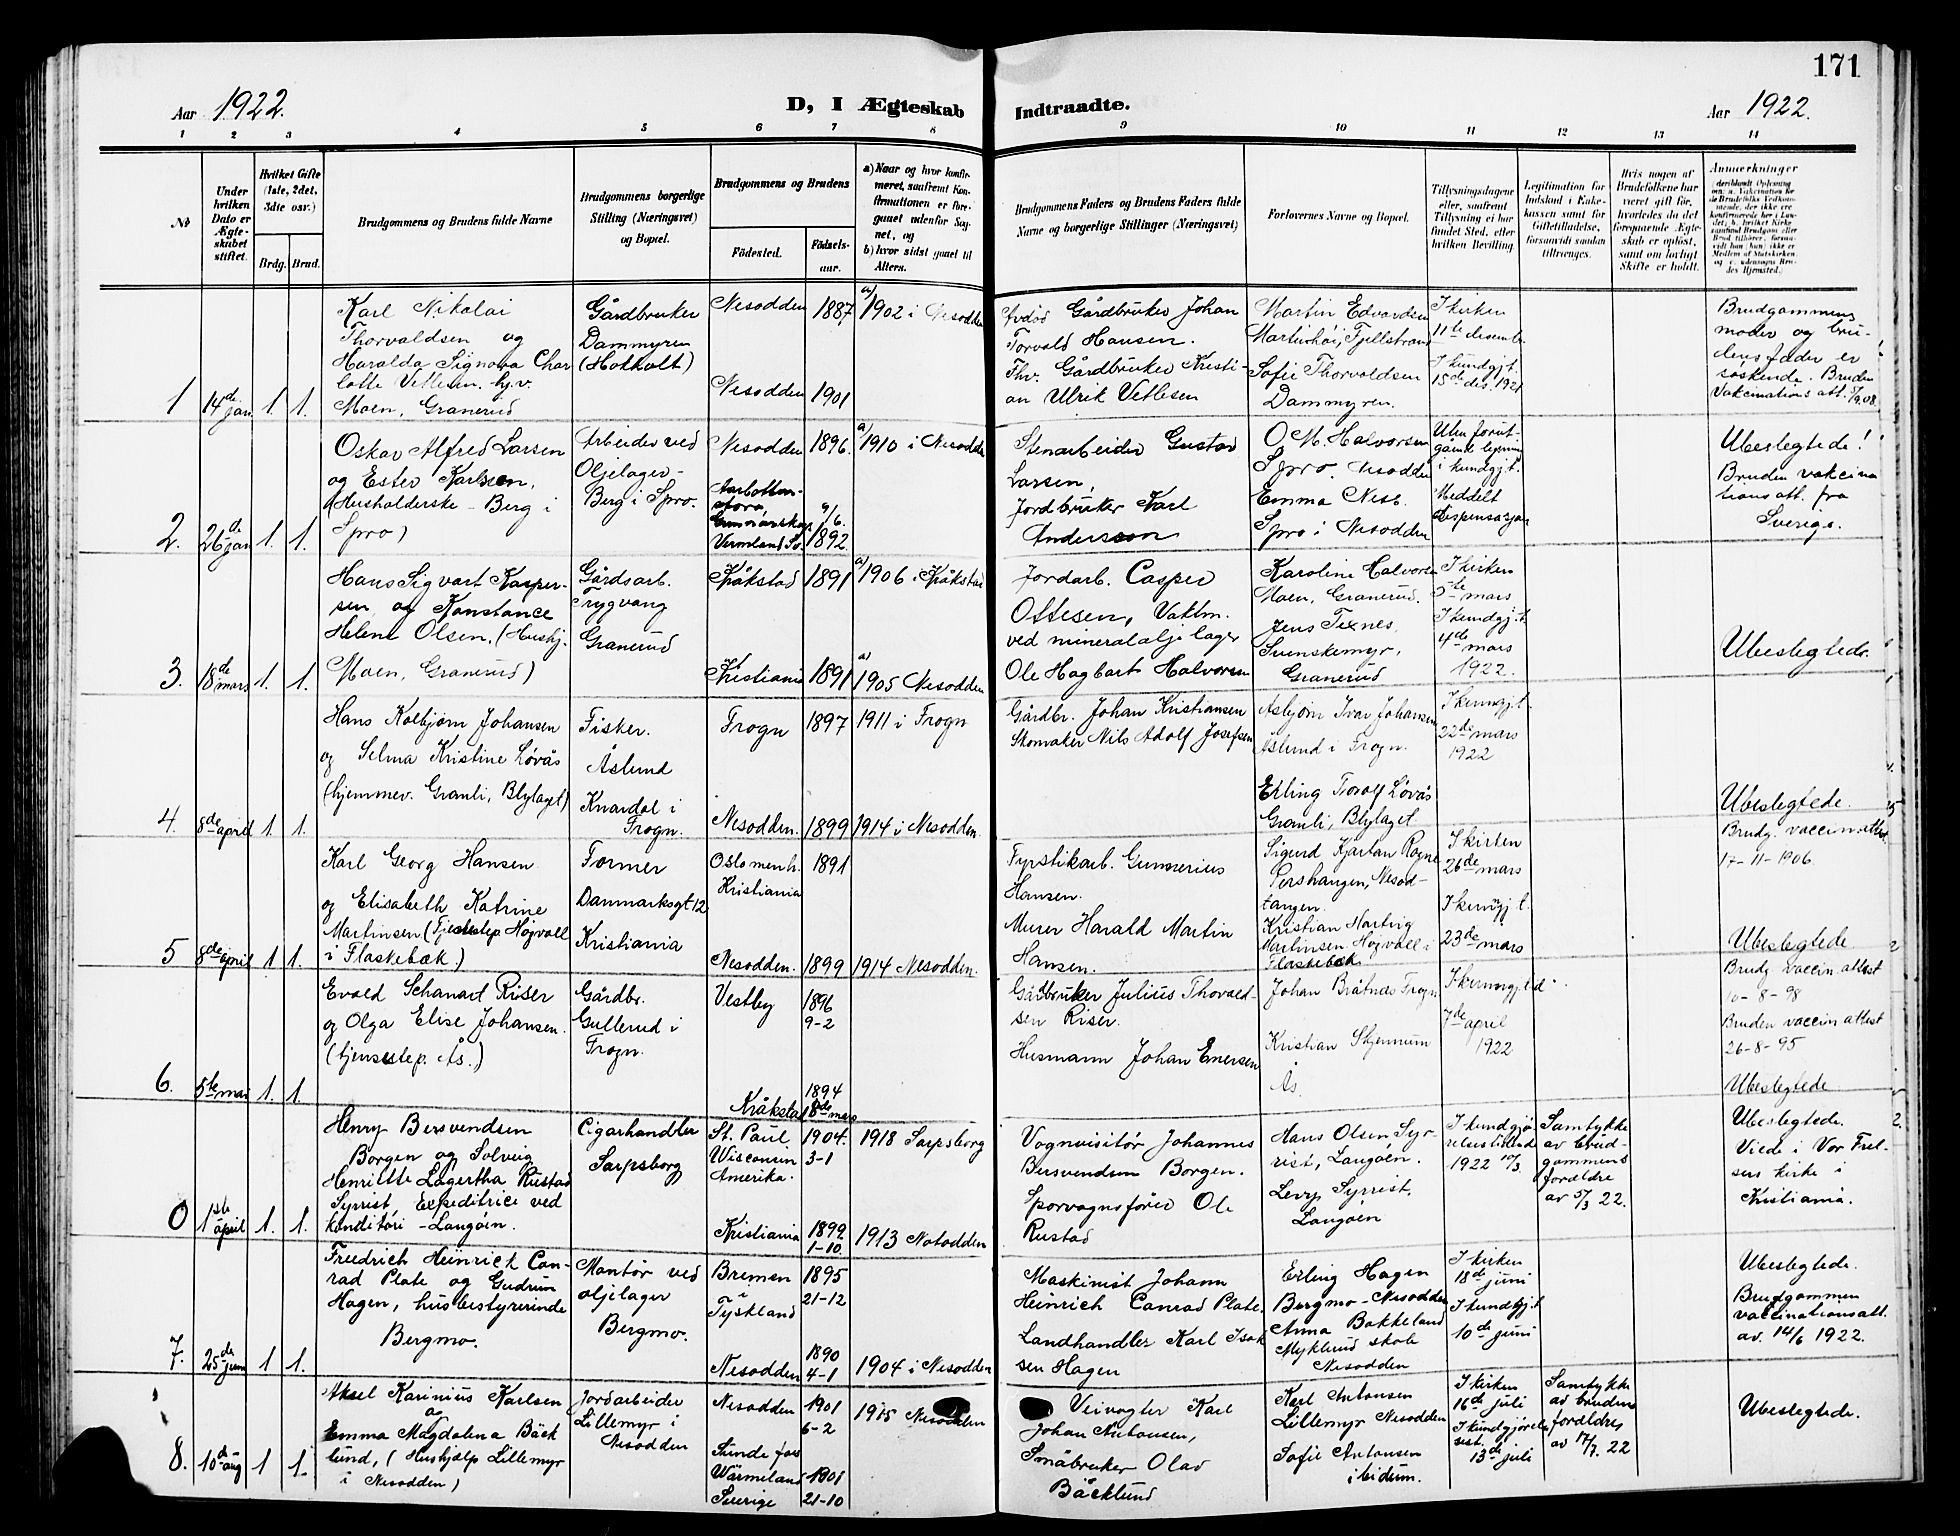 171
Aar 1922.
D, I Ægteskab
Indtraadte.
Aar 1922.
1 2 3 4 5 6 7 8 9 10 11 12 13 14
№
Under hvilken Dato er Ægte-skabet stiftet.
Hvilket Gifte (1ste, 2det, 3dte osv.)
Brdg.
Brud.
Brudgommens og Brudens fulde Navne
Brudgommens borgerlige Stilling (Næringsvei) og Bopæl.
Brudgommens og Brudens
Födested.
Födsels-aar.
a) Naar og hvor konfir-meret, saafremt Kon-firmationen er fore-gaaet udenfor Sog-net, og
b) hvor sidst gaaet til Alters.
Brudgommens Faders og Brudens Faders fulde Navne og borgerlige Stillinger (Næringsvei)
Forlovernes Navne og Bopæl.
Tillysningsdagene eller, saafremt Tillysning ei har fundet Sted, efter hvilken Bevilling
Legitimation for Indskud i Enke-kassen samt for Giftetilladelse, forsaavidt saadan tiltrænges.
Hvis nogen af Brudefolkene har været gift før, hvorledes da det foregaaende Ægte-skab er opløst, samt om lovligt Skifte er holdt.
Anmerkninger
1
14de jan
1. 1.
Karl Nikolai
Thorvaldsen og
Haralda Signora Char
lotte Vetlesen. hj.v.
Moen, Granerud
Gårdbruker
Dammyren
(Hotholt)
Nesodden 1887
Nesodden 1901
a) 1902 i Nesodden
Avdød Gårdbruker Johan
Torvald Hansen.
Thv. Gårdbruker Kristi-
an Ulrik Vetlesen
Martin Edvardsen
Martinhøi, Fjellstrand
Sofie Thorvaldsen
Dammyren.
I kirken
11te desemb.
I kundgj.t.
15de des. 1921
Brudgommens
moder og bru-
dens fader er
søskende. Bruden
Vakcinations att. 5/9 08.
2.
26de jan
1. 1.
Oskar Alfred Larsen
og Ester Karlsson,
(Husholderske - Berg i
Spro)
Arbeider ved
Oljelager -
Berg i Spro.
Nesodden 1896
Vermland Sv. 9/6. 1892
a) 1910 i Nesodden
Stenarbeider Gustav
Larsen,
Jordbruker Karl
Andersson
O. M. Halvorsen
Spro. Nesodden
Emma Nesb.
Spro i Nesodden
Uten forut-
gåend lysning
i kundgj.t.
Meddelt
dispensasjon
Ubeslegtede!
Bruden vakcina
tions att. fra
Sverige.
3.
18de mars
1. 1.
Hans Sigvart Kasper-
sen, og Konstance
Helene Olsen, (Hushj.
Moen, Granerud)
Gårdsarb.
Trygvang
Granerud
Kråkstad 1891
Kristiania 1891
a) 1906 i Kråkstad
a) 1905 Nesodden
Jordarb. Casper
Ottesen, Vaktm.
ved mineralolje lager
Ole Hagbart Halvorsen
Karoline Halvorsen
Moen, Granerud.
Jens Tixnes,
Svenskemyr,
Granerud
I kirken
5te mars
I kundgj.t.
4de mars
1922.
Ubeslegtede.
4.
8de april
1. 1.
Hans Kolbjørn Johansen
og Selma Kristine Løvås
(hjemmev. Granli, Blylaget)
Fisker.
Åslund
Knardal i
Frogn.
Frogn 1897
Nesodden. 1899
1911 i Frogn
1914 i Nesodden.
Gårdbr. Johan Kristiansen
Skomaker Nils Adolf Josefsen
Asbjørn Ivar Johansen
Åslund i Frogn.
Erling Torolf Løvås
Granli, Blylaget.
I kunngj.t.
22de mars
1922
Ubeslegtede.
5
8de april
1 1.
Karl Georg Hansen
og Elisabeth Katrine
Martinsen (Tjenestep. Højvoll
i Flaskebæk.)
Former
Danmarksgt 12
Kristiania
Oslomenh.
Kristiania 1891
Nesodden. 1899
1914 Nesodden.
Fyrstikarb. Gunnerius
Hansen.
Murer Harald Martin
Hansen.
Sigurd Kjartan Rogne
Pershaugen, Nesod-
tangen.
Kristian Hartvig
Martinsen Højvoll i
Flaskebæk
I kirken
26de mars
I kunngj.t.
23de mars
Brudg. vaccin.attest
17-11-1906.
Ubeslegtede
6.
5te mai
1. 1.
Evald Schanart Riser
og Olga Elise Johansen.
(tjenestep. Ås.)
Gårdbr.
Gullerud i
Frogn.
Vestby 1896
9-2
Kråkstad 1894
18de mars
Gårdbruker Julius Thorvald-
sen Riser.
Husmann Johan Enersen
Johan Bråtnes Frogn
Kristian Skjennum
Ås.
I kunngj.tid
7de april
1922
Brudg. vaccin attest
10-8-98
Bruden vaccin attest
26-8-95
Ubeslegtede
0
1ste april
1. 1.
Henry Bersvendsen
Borgen og Solveig
Henriette Lagertha Rustad
Syrrist, Expeditrice ved
konditori - Langøen.
Cigarhandler
Sarpsborg
St. Paul
Wisconsin
Amerika.
1904.
3-1
Kristiania 1899
1-10
1918 Sarpsborg
1913 Notodden
Vognvisitør Johannes
Bersvendsen Borgen.
Sporvognsfører Ole
Rustad
Hans Olsen Syr-
rist, Langøen.
Levy Syrrist,
Langøen
I kundgjø-
relsestidend
1922 10/3.
Samtykke
av brud-
gommens
foreldre
av 5/3 22.
Ubeslegtede.
Viede i Vor Frel-
sers kirke i
Kristiania.
7.
25de juni
1 1.
Friedrich Heinrich Con-
rad Plate og Gudrun
Hagen, husbestyrerinde
Bergmo.
Montør ved
oljelager
Bergmo.
Bremen
i
Tyskland
1895
21-12
Nesodden 1890
4-1
1904 i Nesodden
Maskinist Johann
Heinrich Conrad Plate.
Landhandler Karl Isak
sen Hagen
Erling Hagen
Bergmo - Nesodden
Anna Bakkeland
Myklerud skole
Nesodden
I kirken
18de juni
I kundgj.t
10de juni
Ubeslegtede.
Brudgommen
vaccinationsatt.
av. 14/6 1922.
8.
10de aug
1 1.
Aksel Karinius Karlsen
og
Emma Magdalena Bäck
lund, (Hushjælp Lillemyr
i Nesodden)
Jordarbeider
Lillemyr i
Nesodden
Nesodden 1901
6-2
Sunde fors
Wärmeland
Sverige
1901
21-10
1915 Nesodden
Veivogter Karl
Johan Antonsen,
Småbruker Olav
Bäcklund
Karl Antonsen
Lillemyr Nesodden
Sofie Antonsen
ibidum.
I kirken
16de juli
I kundgjørels
sest.
13de juli
Samtykke
av brudens
foreldre
av 17/7. 22
Ubeslegtede.